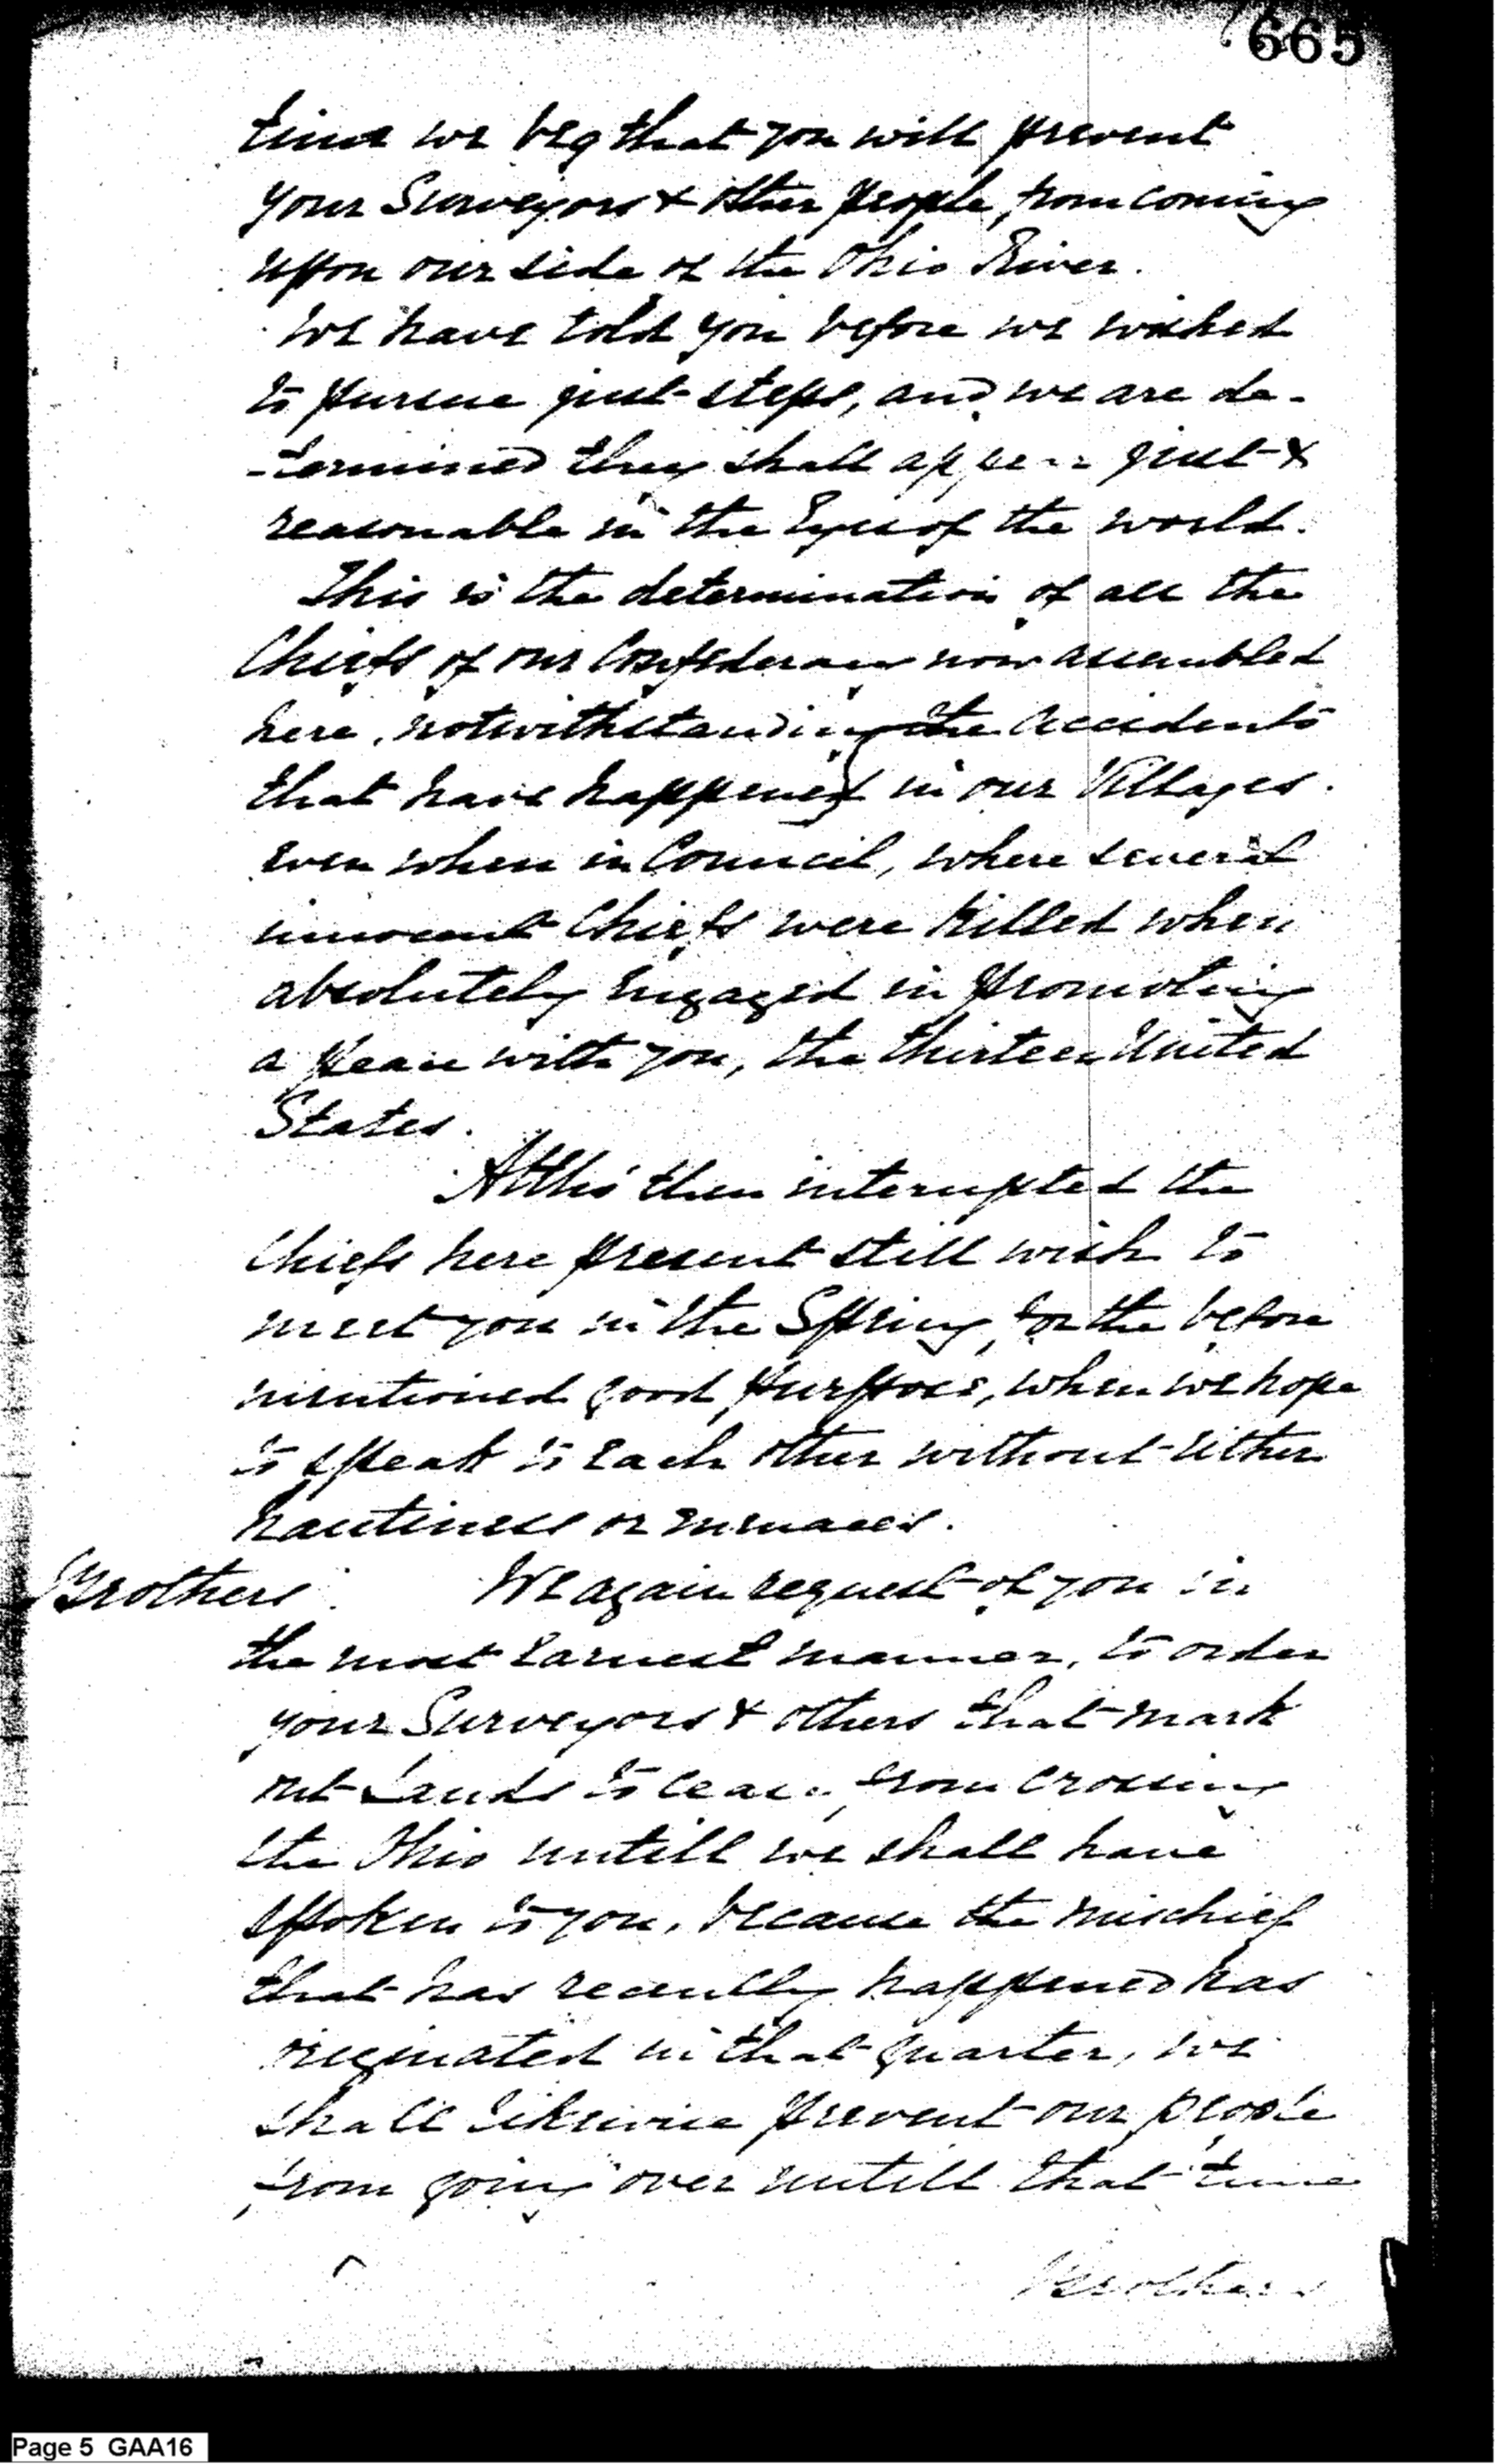 665
time we beg that you will prevent
your Surveyors & other people, from coming
upon our side of the Ohio River.
We have told you before we wished
to pursue just steps, and we are de-
-termined they shall appear just &
reasonable in the Eyes of the world.
This is the determination of all the
Chiefs of our Confederacy now assembled
here, notwithstanding the Accidents
that have happened in our Villages.
Even when in Council, where several
innocent Chiefs were Killed when
absolutely engaged in promoting
a peace with you, the thirteen United
States.
Altho' then interrupted the
Chiefs here present still wish to
meet you in the Spring, for the before
mentioned good purpose, when we hope
to speak to each other without either
hautiness or menaces.
Brothers. We again request of you in
the most earnest manner, to order
your Surveyors & others that mark
out Lands to cease from crossing
the Ohio untill we shall have
spoken to you, because the mischief
that has recently happened has
originated in that quarter, we
shall likewise prevent our people
from going over untill that time
Brothers
Page 5 GAA16